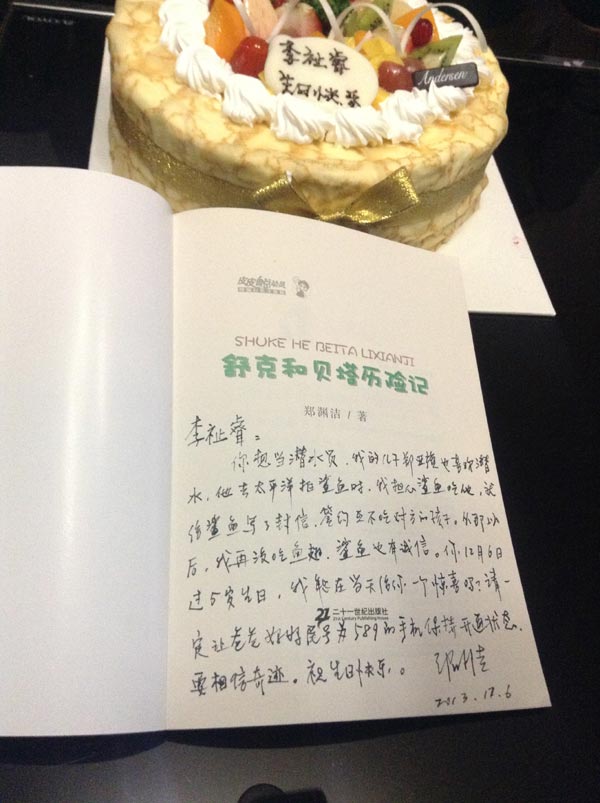 李祉睿
生日快乐
Andersen
皮皮鲁总动员
SHUKE HE BEITA LIXIANJI
舒克和贝塔历险记
郑渊洁 / 著
李祉睿：
你想当潜水员，我的儿子郑亚旗也喜欢潜
水，他去太平洋拍鲨鱼时，我担心鲨鱼吃他，就
给鲨鱼写了封信，签约互不吃对方的孩子。从那以
后，我再没吃鱼翅，鲨鱼也有诚信。你12月6日
过5岁生日，我能在当天给你一个惊喜吗？请一
21 二十一世纪出版社
21st Century Publishing House
定让爸爸妈妈尾号为589的手机保持开通状态。
要相信奇迹。祝生日快乐。郑渊洁
2013.12.6